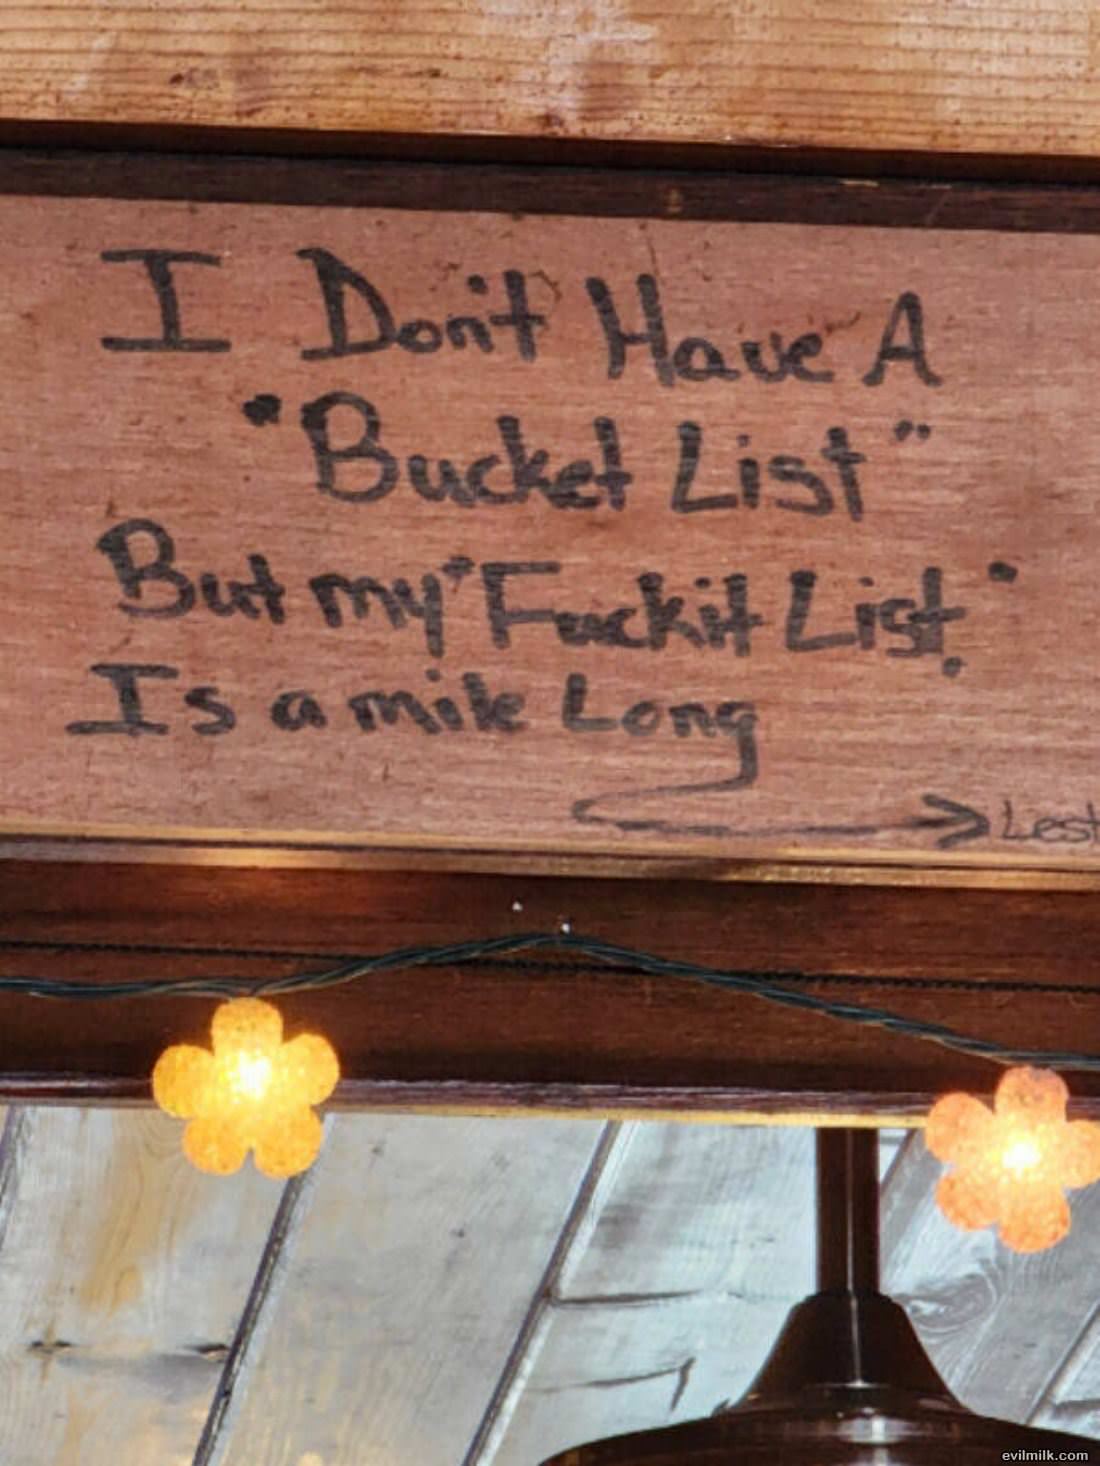 I Don't Have A
"Bucket List"
But my "Fuckit List."
Is a mile Long
evilmilk.com